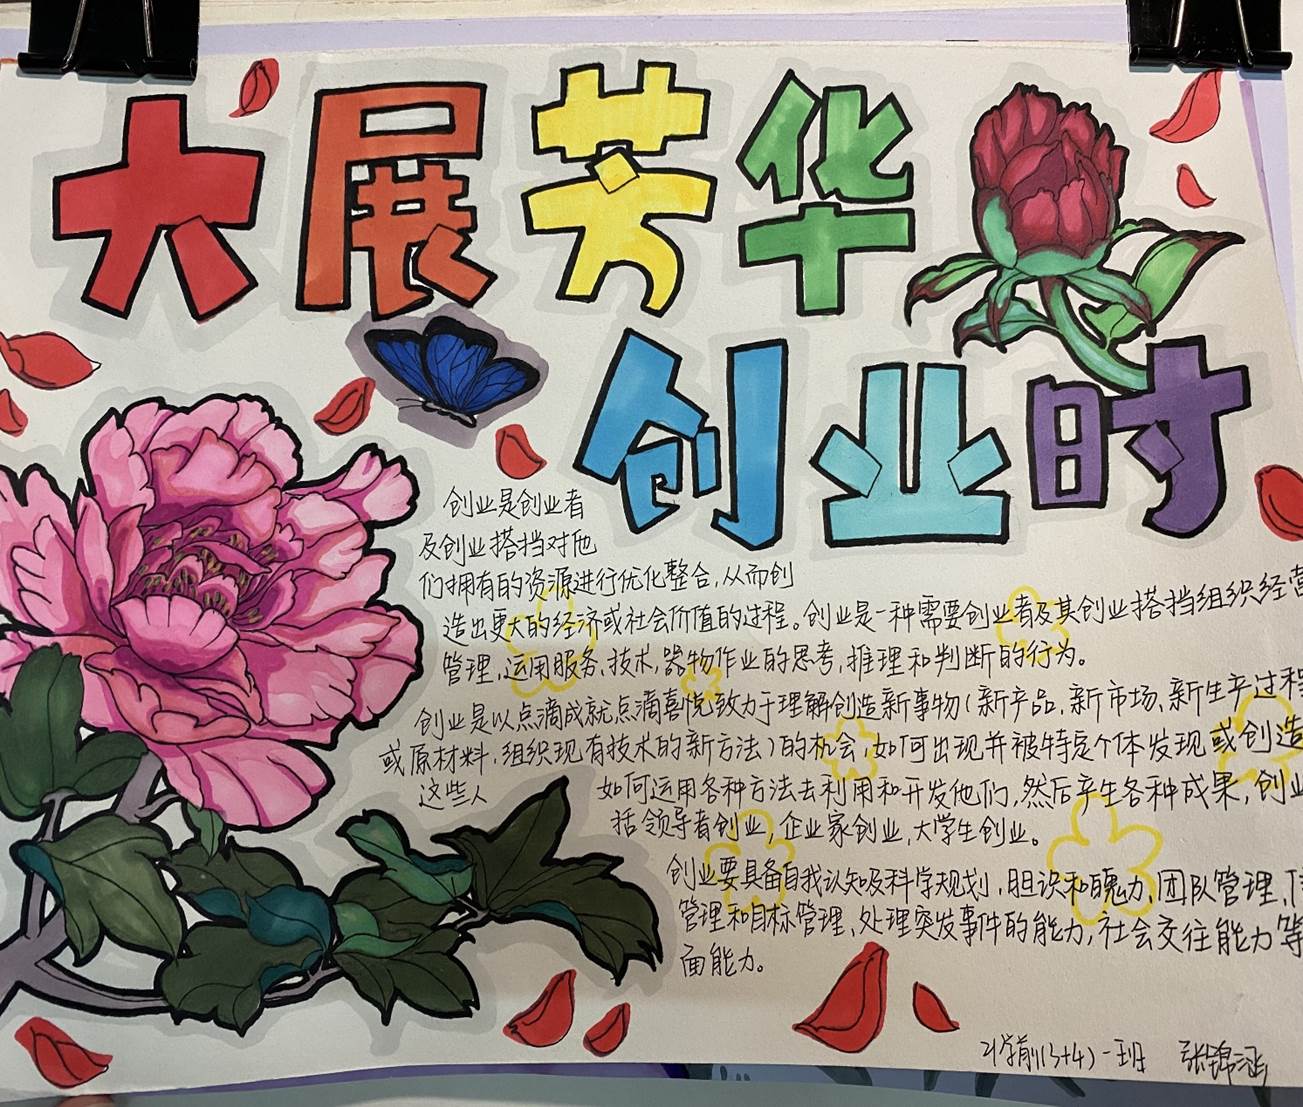 大展芳华
创业时
创业是创业者
及创业搭挡对他
们拥有的资源进行优化整合,从而创
造出更大的经济或社会价值的过程。创业是一种需要创业者及其创业搭挡组织经营
管理,运用服务,技术,器物作业的思考,推理和判断的行为。
创业是以点滴成就点滴喜悦致力于理解创造新事物(新产品,新市场、新生产过程
或原材料,组织现有技术的新方法)的机会,如何出现并被特定个体发现或创造
这些人 如何运用各种方法去利用和开发他们,然后产生各种成果,创业
括领导者创业,企业家创业,大学生创业。
创业要具备自我认知及科学规划,胆识和魄力,团队管理,
管理和目标管理、处理突发事件的能力,社会交往能力等
面能力。
21学前(3+4)一班 张锦涵